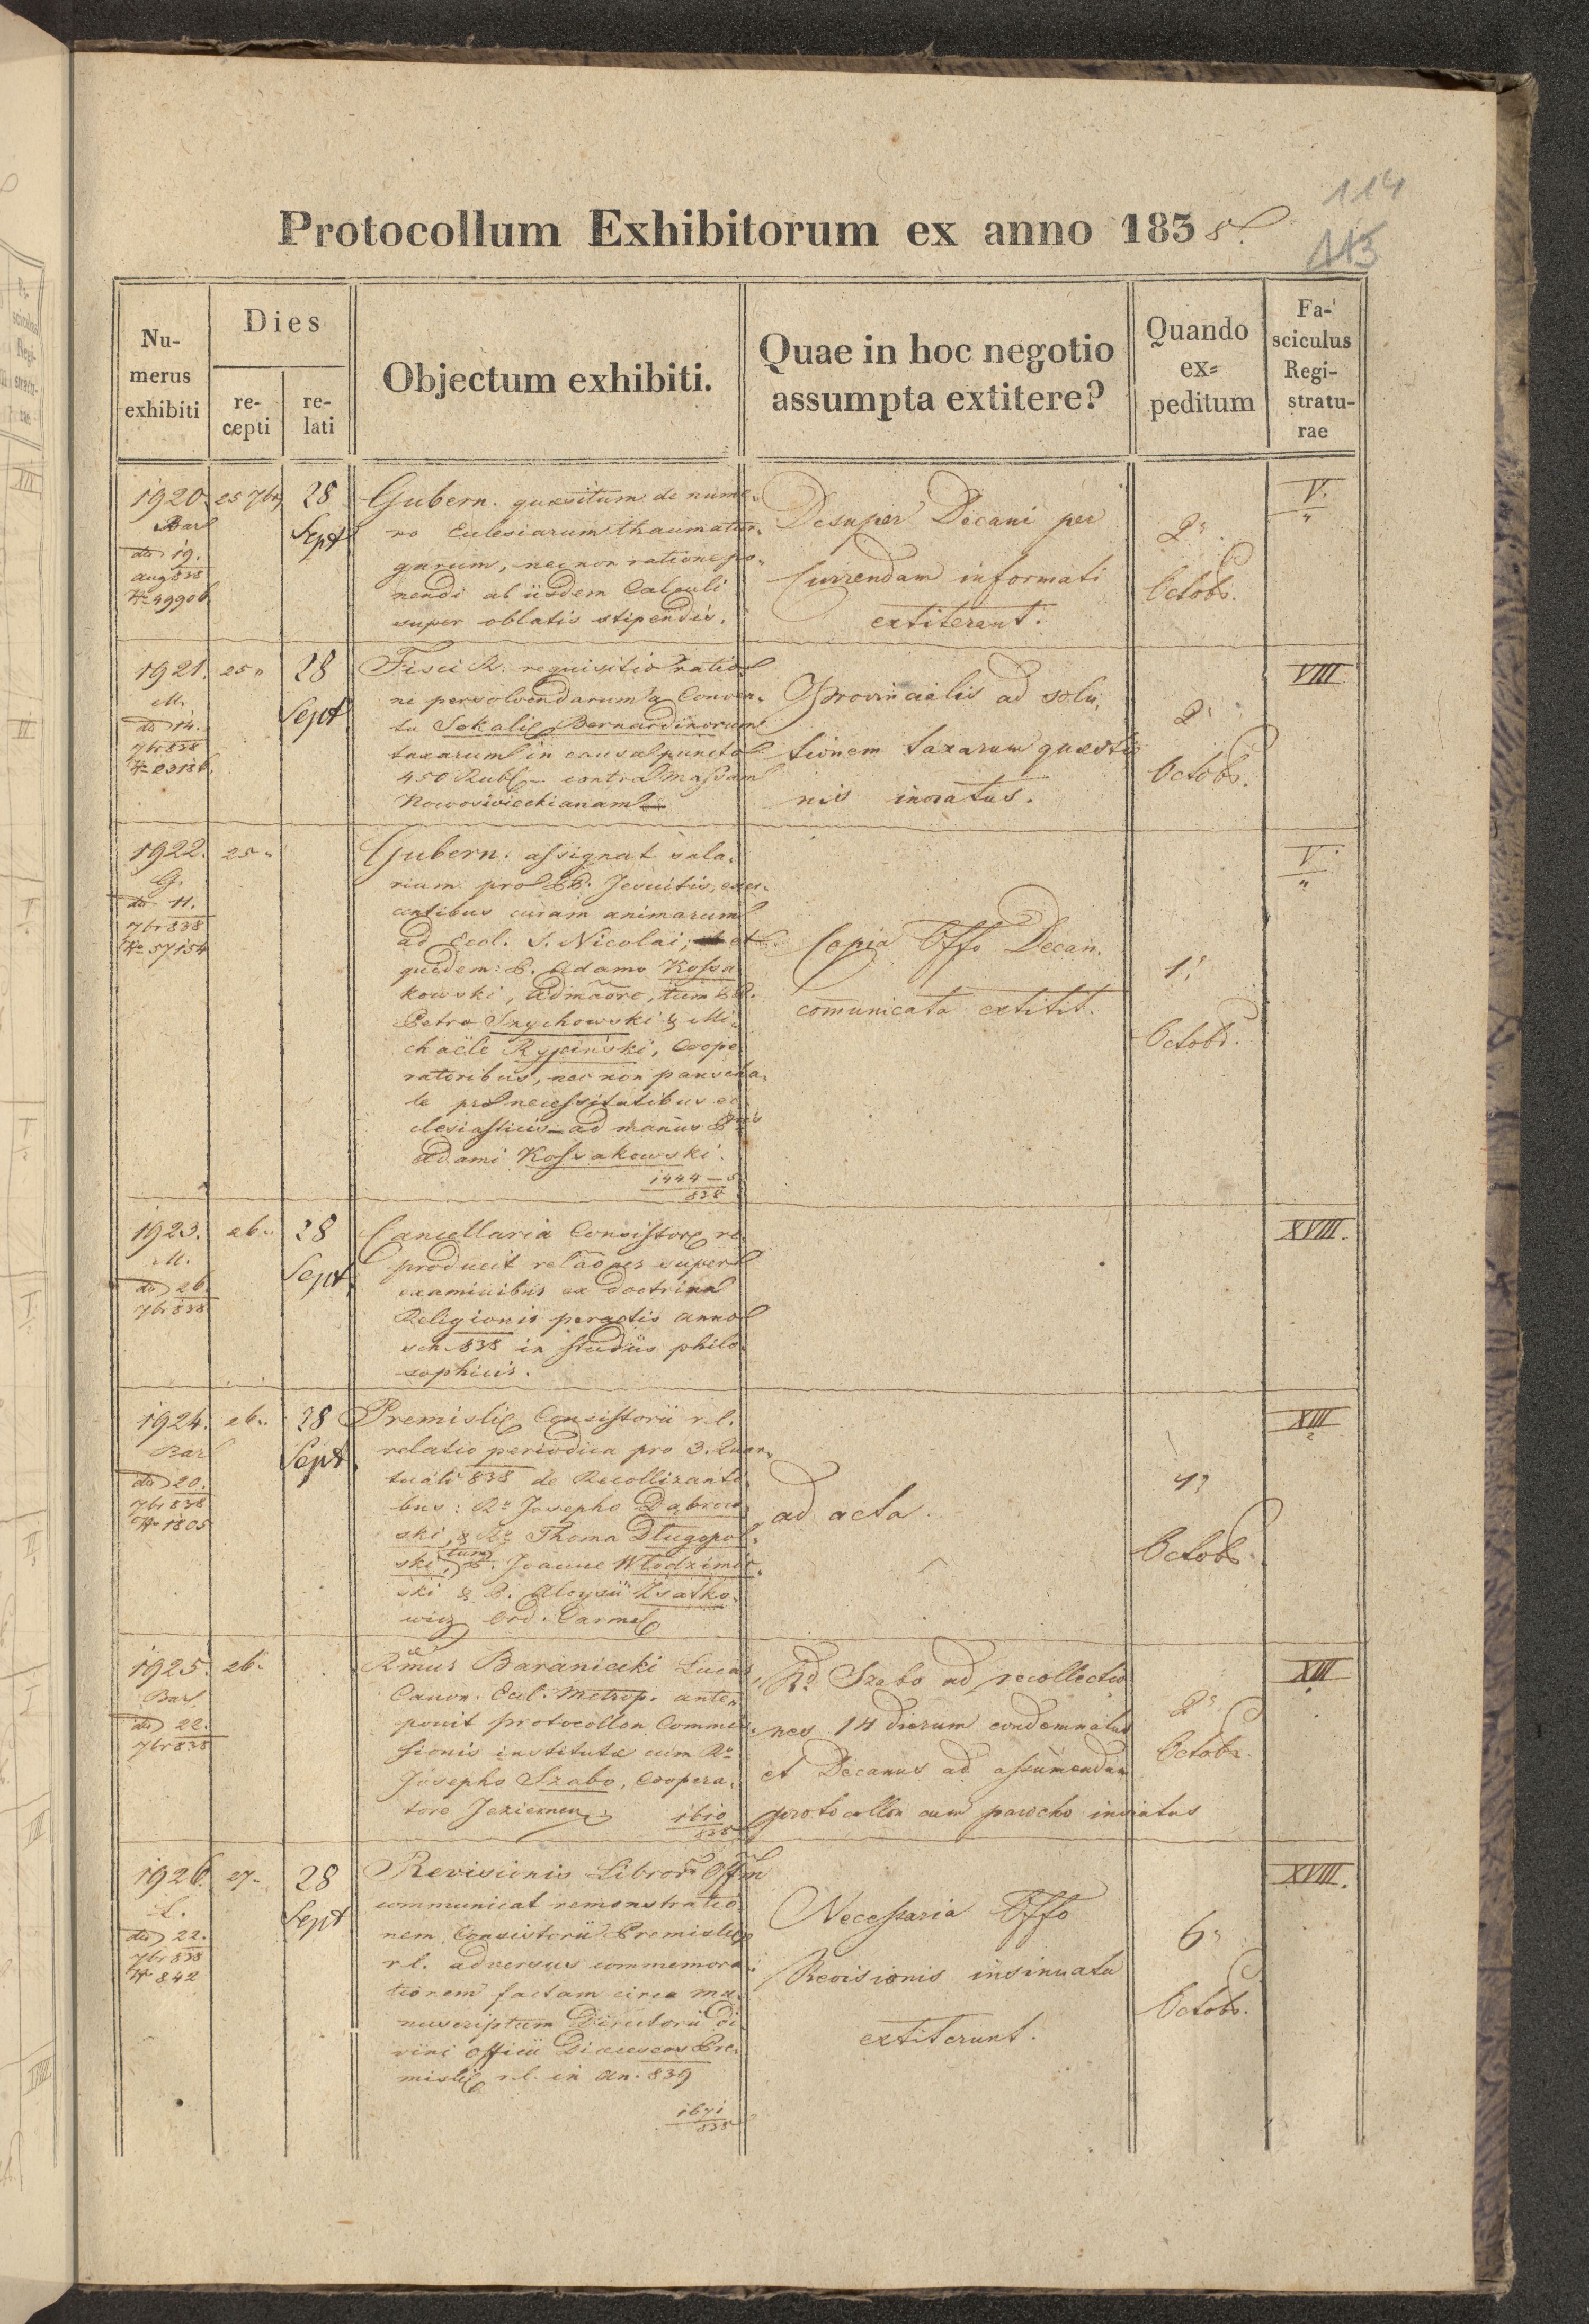 114
Protocollum Exhibitorum ex anno 1838.
115
Nu-
merus
exhibiti
Dies
re-
cepti
re-
lati
Objectum exhibiti.
Quae in hoc negotio
assumpta extitere?
Quando
ex=
peditum
Fa-
sciculus
Regi-
stratu-
rae
1920. 25 7br
Bar
do 19.
aug 838
28
Sept
Gubern. quaesitum de nume-
ro Eclesiarum thaumatur-
garum, nec non ratione po-
nendi ab iisdem Calculi
super oblatis stipendiis.
Desuper Decani per
Currendam informati
extiterunt.
2
Octobr.
V.
1921. 25
M.
do 14.
7br 838
28
Sept
Fisci R. requisitio ratio-
ne persolvendarum a Conven-
tu Sokalie Bernardinorum
taxarum in causa puncto
450 Rub contra Massam
Nowosivieckianam
Provincialis ad solu-
tionem taxarum quaestio
nis inviatus.
2
Octobr.
VIII
1922. 25
G.
do 11.
7br 838
No 57154
Gubern. assignat sala-
rium pro PP. Jesuitis, exer-
centibus curam animarum
ad Eccl. S. Nicolai; et
quidem: P. Adamo Kossa
kowski, Admãore, tum PP.
Petro Snychowski & Mi-
chaële Rypinski, Coope
ratoribus, nec non pauscha-
le pro necessitatibus ec-
clesiasticis ad manus P
Adami Kossakowski.
1444
838
Copia Offo Decan.
comunicata extitit.
1
Octobr.
V
1923. 26
M.
do 26
7br 838
28
Sept
Cancellaria Consistore re-
producit relãones super
examinibus ex doctrina
Religionis peractis anno
sch 838 in studiis philo-
sophicis.
XVIII.
1924. 26
Bar
do 20.
7br 838
No 1805
28
Sept
Premislie Consistorii r.l.
relatio periodica pro 3. Quar-
tuali 838 de Recollizanti-
bus: Ro Josepho Dąbrow-
ski, & Ro Thoma Długopol-
ski, tum P. Joanne Włodzimir-
ski & P. Aloysii
wicz Ord. Carmel
ad acta.
Octobr.
XIII
2
1925. 26
Bar
do 22.
7br 838
Rmus Baraniecki Lucas,
Canon. Eccl. Metrop. ante-
ponit protocollon Commis-
sionis institutae cum Ro
Josepho Szabo, Coopera-
tore Jeziernen
1610
838
Rd Szabo ad recollectio
nes 14 dierum condemnatus
et Decanus ad assumendum
protocollon cum parocho inviatus
2
Octobr.
XIII
1926. 27
L.
do 22.
7br 838
No 842
28
Sept
Revisionis Libror Offm
communicat remonstratio
nem Consistorii Premislie
r.l. adversus commemora-
tionem factam circa ma-
nuscriptum Directorii di
vini officii Dioeceseos Pre-
mislie r.l. in an. 839
1671
838
Necessaria Offo
Revisionis insinuata
extiterunt.
6
Octobr.
XVIII.